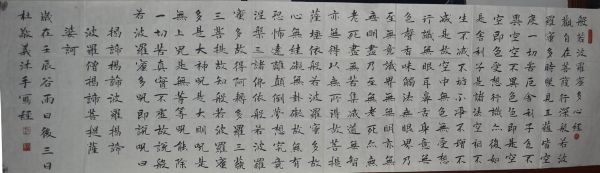 般若波羅蜜多心經
觀自在菩薩行深般若波
羅蜜多時照見五蘊皆空
度一切苦厄舍利子色不
異空空不異色色即是空
空即是色受想行識亦復如
是舍利子是諸法空相不
生不滅不垢不淨不增不
減是故空中無色無受想
行識無眼耳鼻舌身意無
色聲香味觸法無眼界乃
至無意識界無無明亦無
無明盡乃至無老死亦無
老死盡無苦集滅道無智
亦無得以無所得故菩提
薩埵依般若波羅蜜多故
心無罣礙無罣礙故無有
恐怖遠離顛倒夢想究竟
涅槃三世諸佛依般若波羅
蜜多故得阿耨多羅三藐
三菩提故知般若波羅蜜
多是大神呪是大明呪是
無上呪是無等等呪能除
一切苦真實不虛故說般
若波羅蜜多呪即說呪曰
揭諦揭諦波羅揭諦
波羅僧揭諦菩提薩
婆訶
歲在壬辰谷雨日後三日
杜敬義沐手寫經